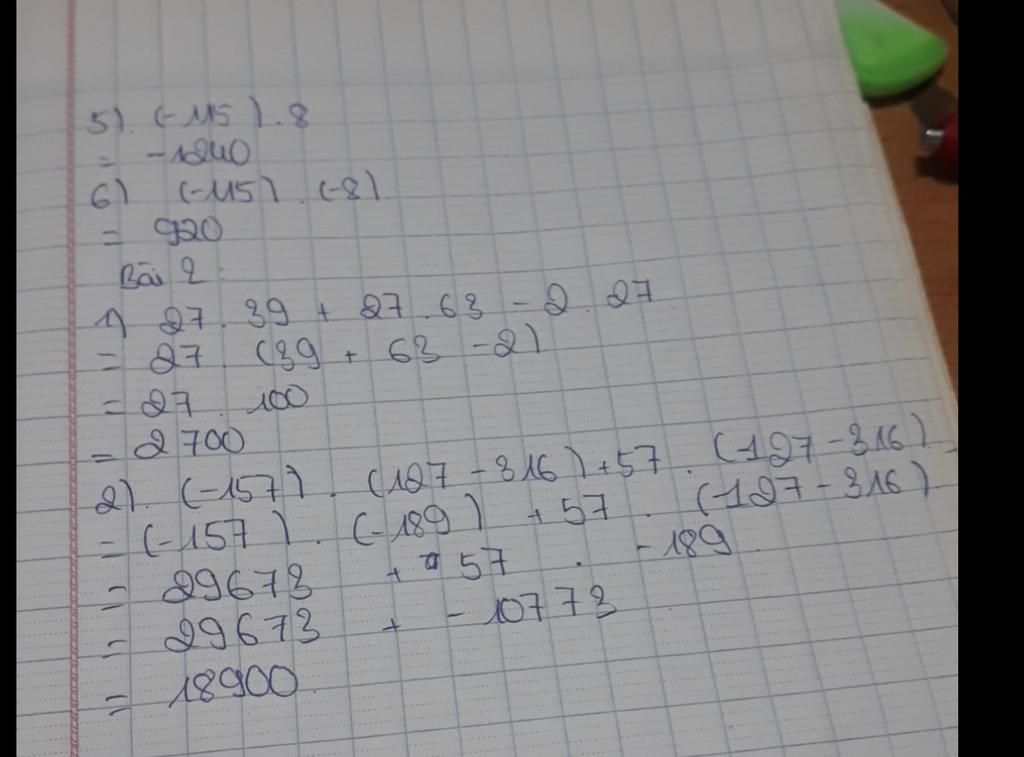 5). (-115). 8
= -1240
6) (-115). (-8)
= 920
Bài 2:
1) 27. 39 + 27. 63 - 2. 27
= 27. (39 + 63 - 2)
= 27. 100
= 2700
2). (-157). (127 - 316) + 57. (127 - 316)
= (-157). (-189) + 57. (127 - 316)
= 29673 + 57. -189
= 29673 + -10773
= 18900